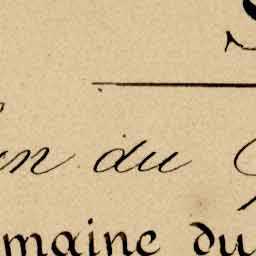 un du
maine du